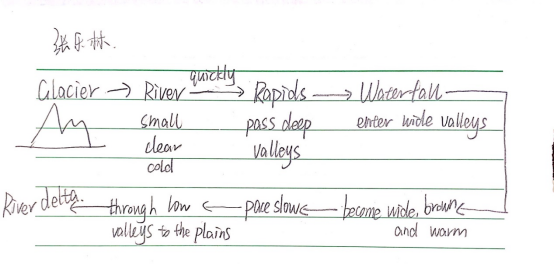 张乐林.
Glacier → River quickly → Rapids → Waterfall
small pass deep enter wide valleys
clear valleys
cold
River delta. ← through low ← pace slow ← become wide, brown
valleys to the plains and warm